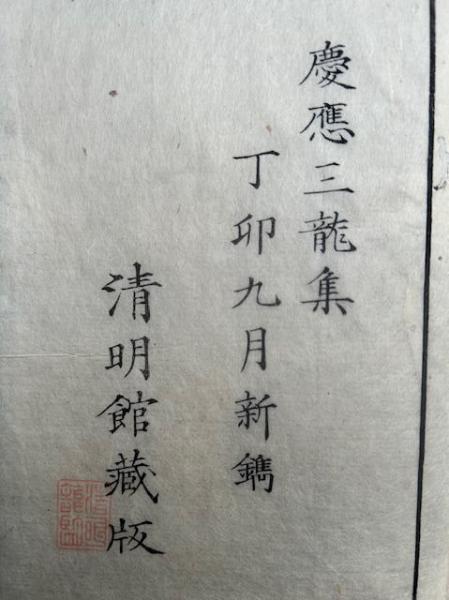 慶應三龍集
丁卯九月新鐫
清明館藏版